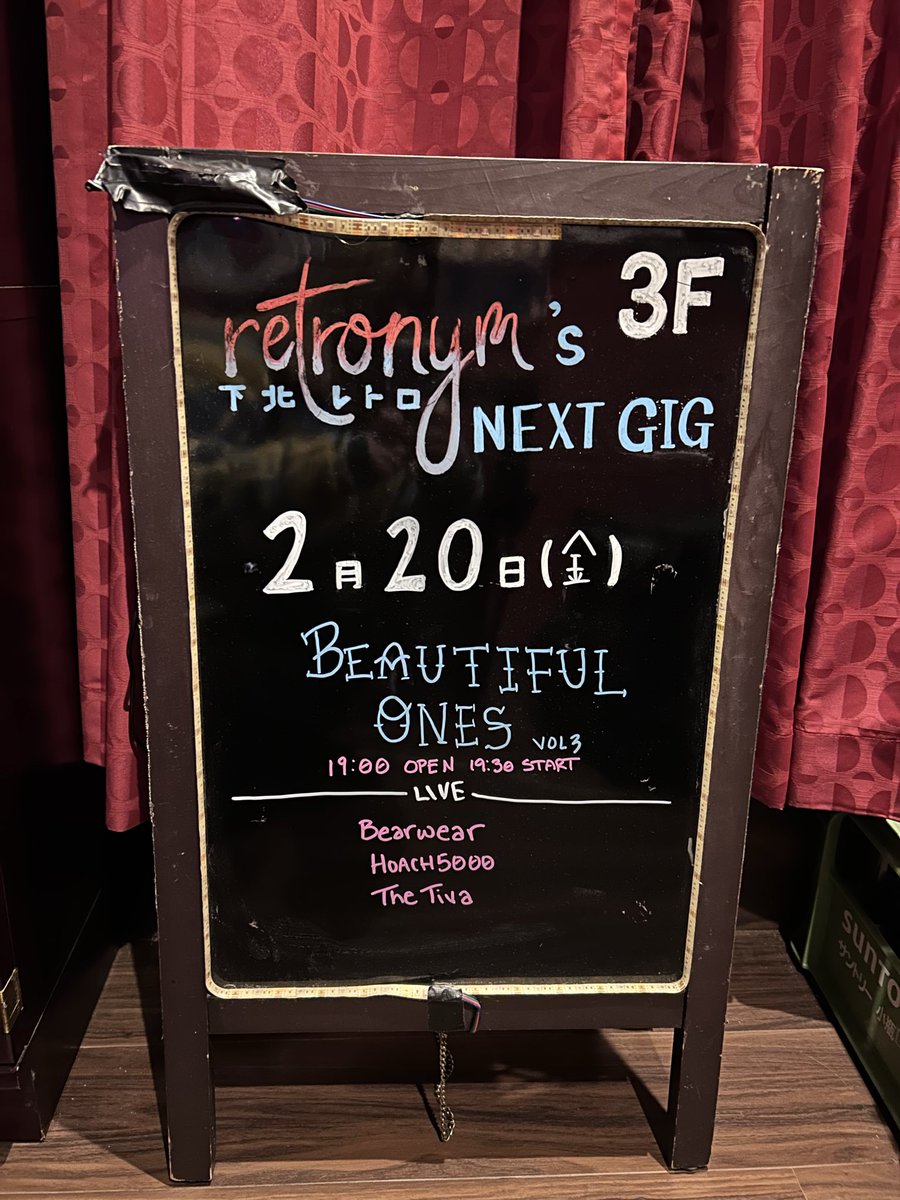 retronym's 3F
下北レトロ
NEXT GIG
2月20日(金)
BEAUTIFUL
ONES VOL3
19:00 OPEN 19:30 START
LIVE
Bearwear
HOACH5000
The Tiva
SUNTO
サントリー